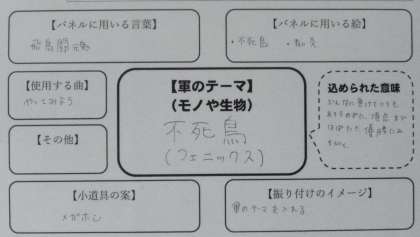 【パネルに用いる言葉】
飛鳥闘魂
【パネルに用いる絵】
・不死鳥 ・烈炎
【使用する曲】
やってみよう
【軍のテーマ】
(モノや生物)
不死鳥
(フェニックス)
込められた意味
どんなに負けていても
あきらめず、頂点まで
はばたき、優勝に
【その他】
【小道具の案】
メガホン
【振り付けのイメージ】
軍のテーマを入れる